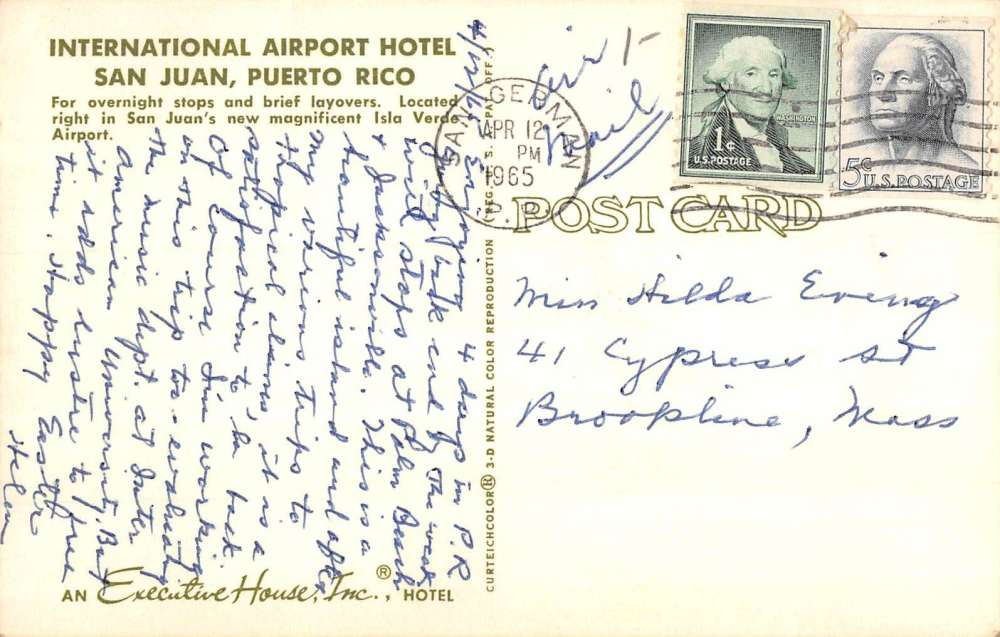 INTERNATIONAL AIRPORT HOTEL
SAN JUAN, PUERTO RICO
For overnight stops and brief layovers. Located
right in San Juan's new magnificent Isla Verde
Airport.
4/12/
Enjoying 4 days in P.R
followed by week end of the week
with stops at Palm Beach
& Jacksonville. This is a
beautiful island and after
my various trips to
tropical climes, it is a
satisfaction to be back.
Of course I'm working
on this trip too - evaluating
the music dept. at Inter
American University. But
it adds lustre to free
time. Happy Easter
Helen
AN Executive House, Inc.,® HOTEL
CURTEICHCOLOR® 3-D NATURAL COLOR REPRODUCTION
REG. U. S. PAT. OFF.
Air
Mail
SAN GERMAN
APR 12
PM
1965
P.R.
WASHINGTON
1¢
U.S. POSTAGE
5¢
U.S. POSTAGE
POST CARD
Miss Hilda Ewing
41 Cypress St
Brookline, Mass